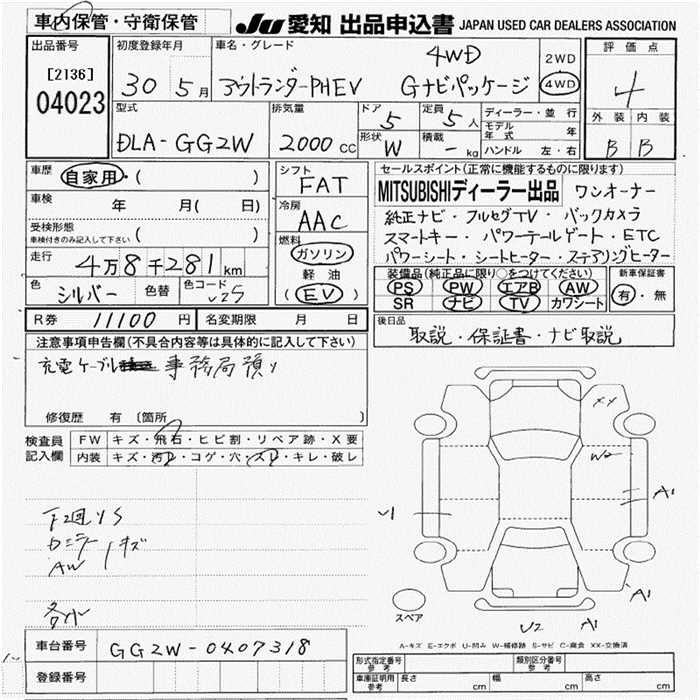 車内保管・守衛保管
JU 愛知 出品申込書 JAPAN USED CAR DEALERS ASSOCIATION
出品番号
[2136]
04023
初度登録年月
30 5月
車名・グレード
アウトランダーPHEV
4WD
Gナビパッケージ
2WD
4WD
評価点
4
外装 内装
B B
型式
DLA-GG2W
排気量
2000 CC
ドア
5
定員
5 人
形状
W
積載
- kg
ディーラー・並行
モデル年式 年
ハンドル 左・右
車歴 自家用・( )
車検 年 月( 日)
受検形態
車検付きのみ記入して下さい ( )
走行 4万8千281 km
色 シルバー 色替 色コード U25
シフト
FAT
冷房
AAC
燃料
ガソリン
軽油
(EV)
セールスポイント(正常に機能するものに限ります)
MITSUBISHIディーラー出品 ワンオーナー
純正ナビ・フルセグTV・バックカメラ
スマートキー・パワーテールゲート・ETC
パワーシート・シートヒーター・ステアリングヒーター
装備品(純正品に限り○をつけてください)
PS PW エアB AW
SR ナビ TV カワシート
新車保証書
有・無
R券 11100円 名変期限 月 日
後日品
取説・保証書・ナビ取説
注意事項申告欄(不具合内容等は具体的に記入して下さい)
充電ケーブル 事務局預り
修復歴 有 〔箇所 〕
検査員
記入欄
FW キズ・飛石・ヒビ割・リペア跡・X要
内装 キズ・汚れ・コゲ・穴・スレ・キレ・破レ
F2廻りS
AW キズ
各小
XX
W2
A1
U1
A1
U2 A1
スペア
A-キズ E-エクボ U-凹み W-補修跡 S-サビ C-腐食 XX-交換済
車台番号 GG2W-0407318
登録番号
形式指定番号
参考
類別区分番号
参考
車庫証明用
参考
長さ cm 幅 cm 高さ cm